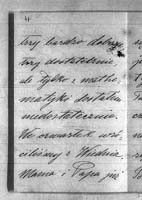 4
try bardzo dobry
try dostateczne
ale tylko z mathe
matyki dostałem
niedostatecznie.
We czwartek wró
ciliśmy z Wiednia.
Mama i Papa już